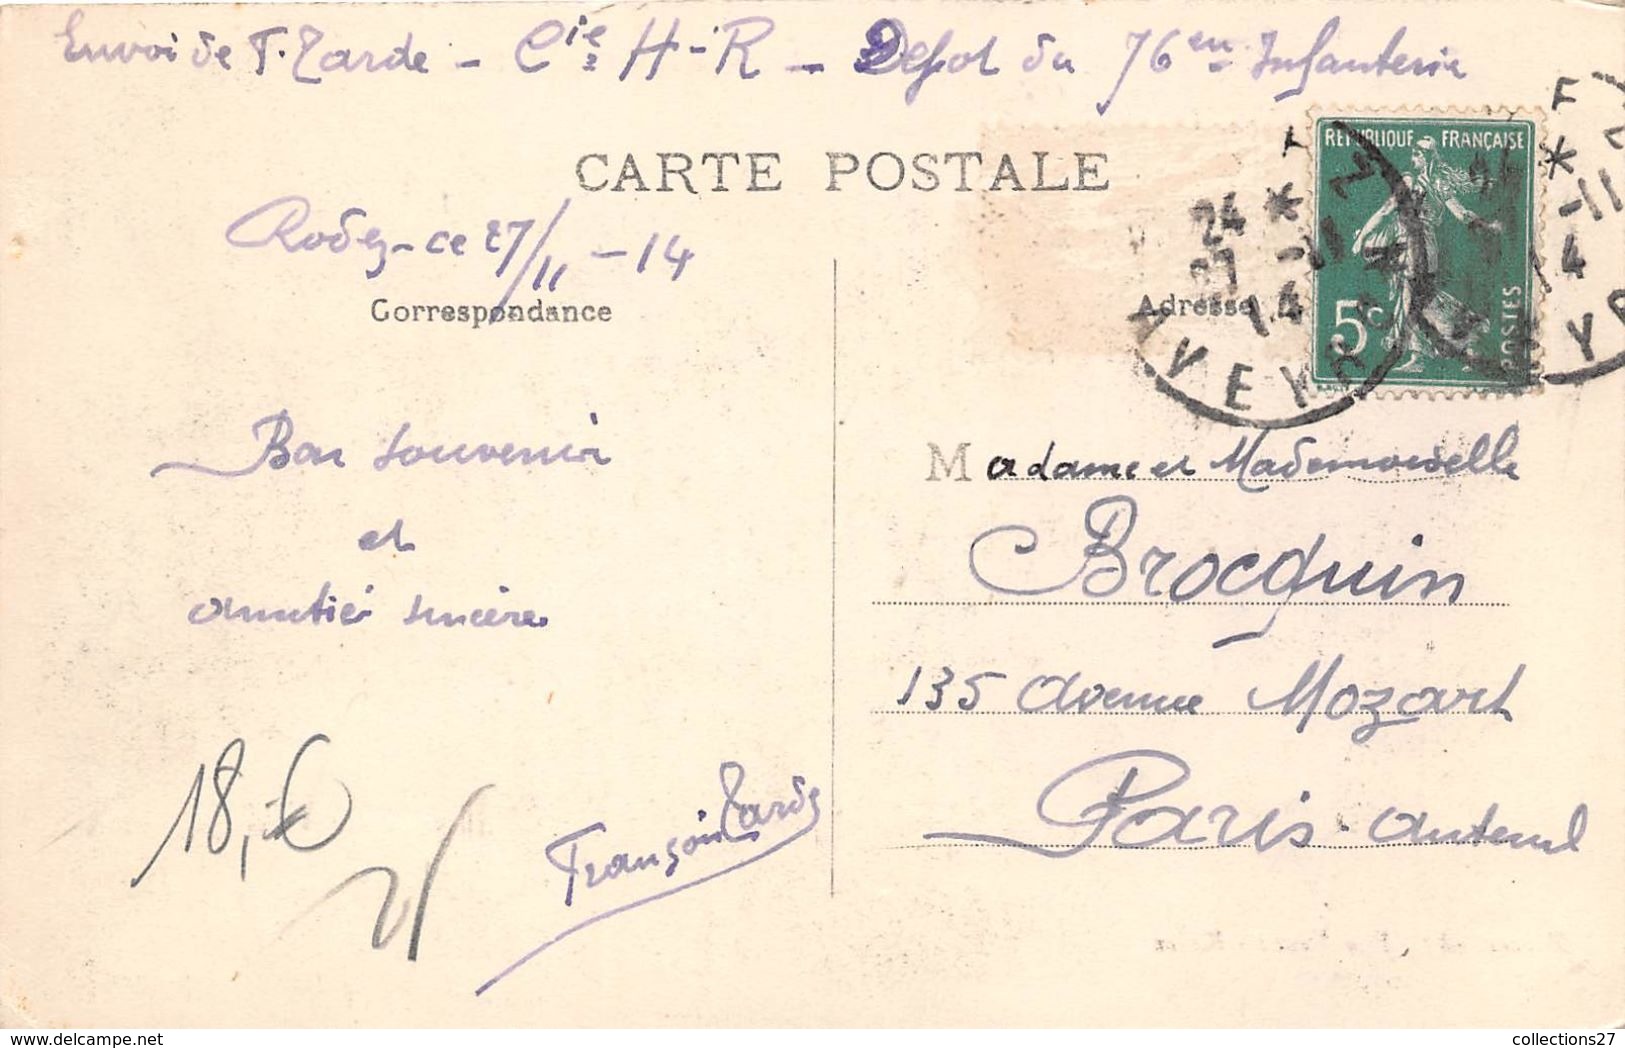 Envoi de F. Tarde - Cie H-R - Depot du 76em Infanterie
CARTE POSTALE
Rodez - ce 27/11 - 14
Correspondance
Adresse
REPUBLIQUE FRANÇAISE
5c
POSTES
24 *
27 -11
14
AVEYR
*
-11
14
VEYR
Bon souvenir
et
amitié sincère
Madame et Mademoiselle
Brocquin
135 Avenue Mozart
Paris - Auteuil
François Tarde
18,-€
collections27